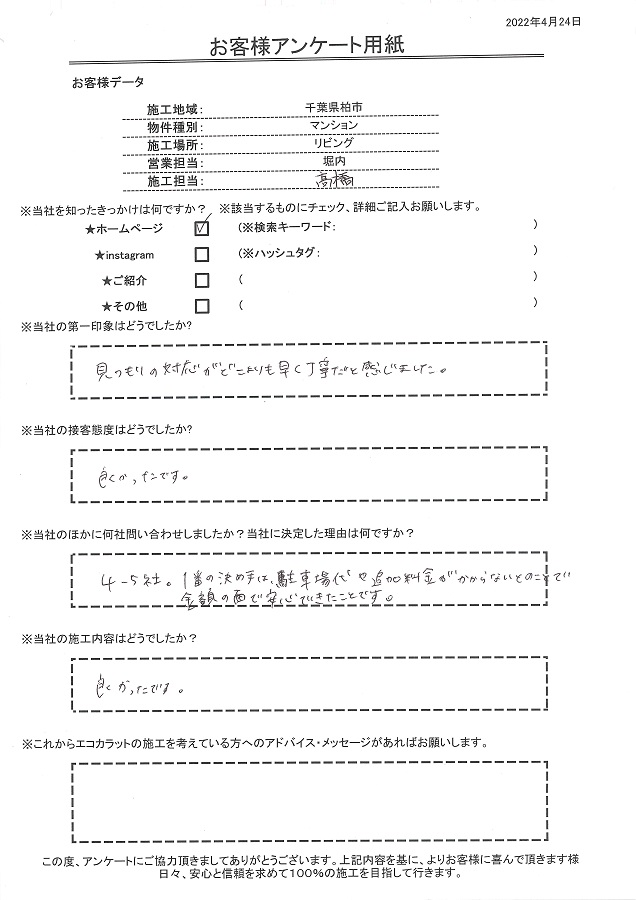 2022年4月24日
お客様アンケート用紙
お客様データ
施工地域: 千葉県柏市
物件種別: マンション
施工場所: リビング
営業担当: 堀内
施工担当: 高橋
※当社を知ったきっかけは何ですか? ※該当するものにチェック、詳細ご記入お願いします。
★ホームページ ☑ (※検索キーワード: )
★instagram □ (※ハッシュタグ: )
★ご紹介 □ ( )
★その他 □ ( )
※当社の第一印象はどうでしたか?
見つもりの対応がどこよりも早く丁寧だと感じました。
※当社の接客態度はどうでしたか?
良かったです。
※当社のほかに何社問い合わせしましたか?当社に決定した理由は何ですか?
4-5社。1番の決め手は、駐車場代や追加料金がかからないとのことで
金額の面で安心できたことです。
※当社の施工内容はどうでしたか?
良かったです。
※これからエコカラットの施工を考えている方へのアドバイス・メッセージがあればお願いします。
この度、アンケートにご協力頂きましてありがとうございます。上記内容を基に、よりお客様に喜んで頂きます様
日々、安心と信頼を求めて100%の施工を目指して行きます。